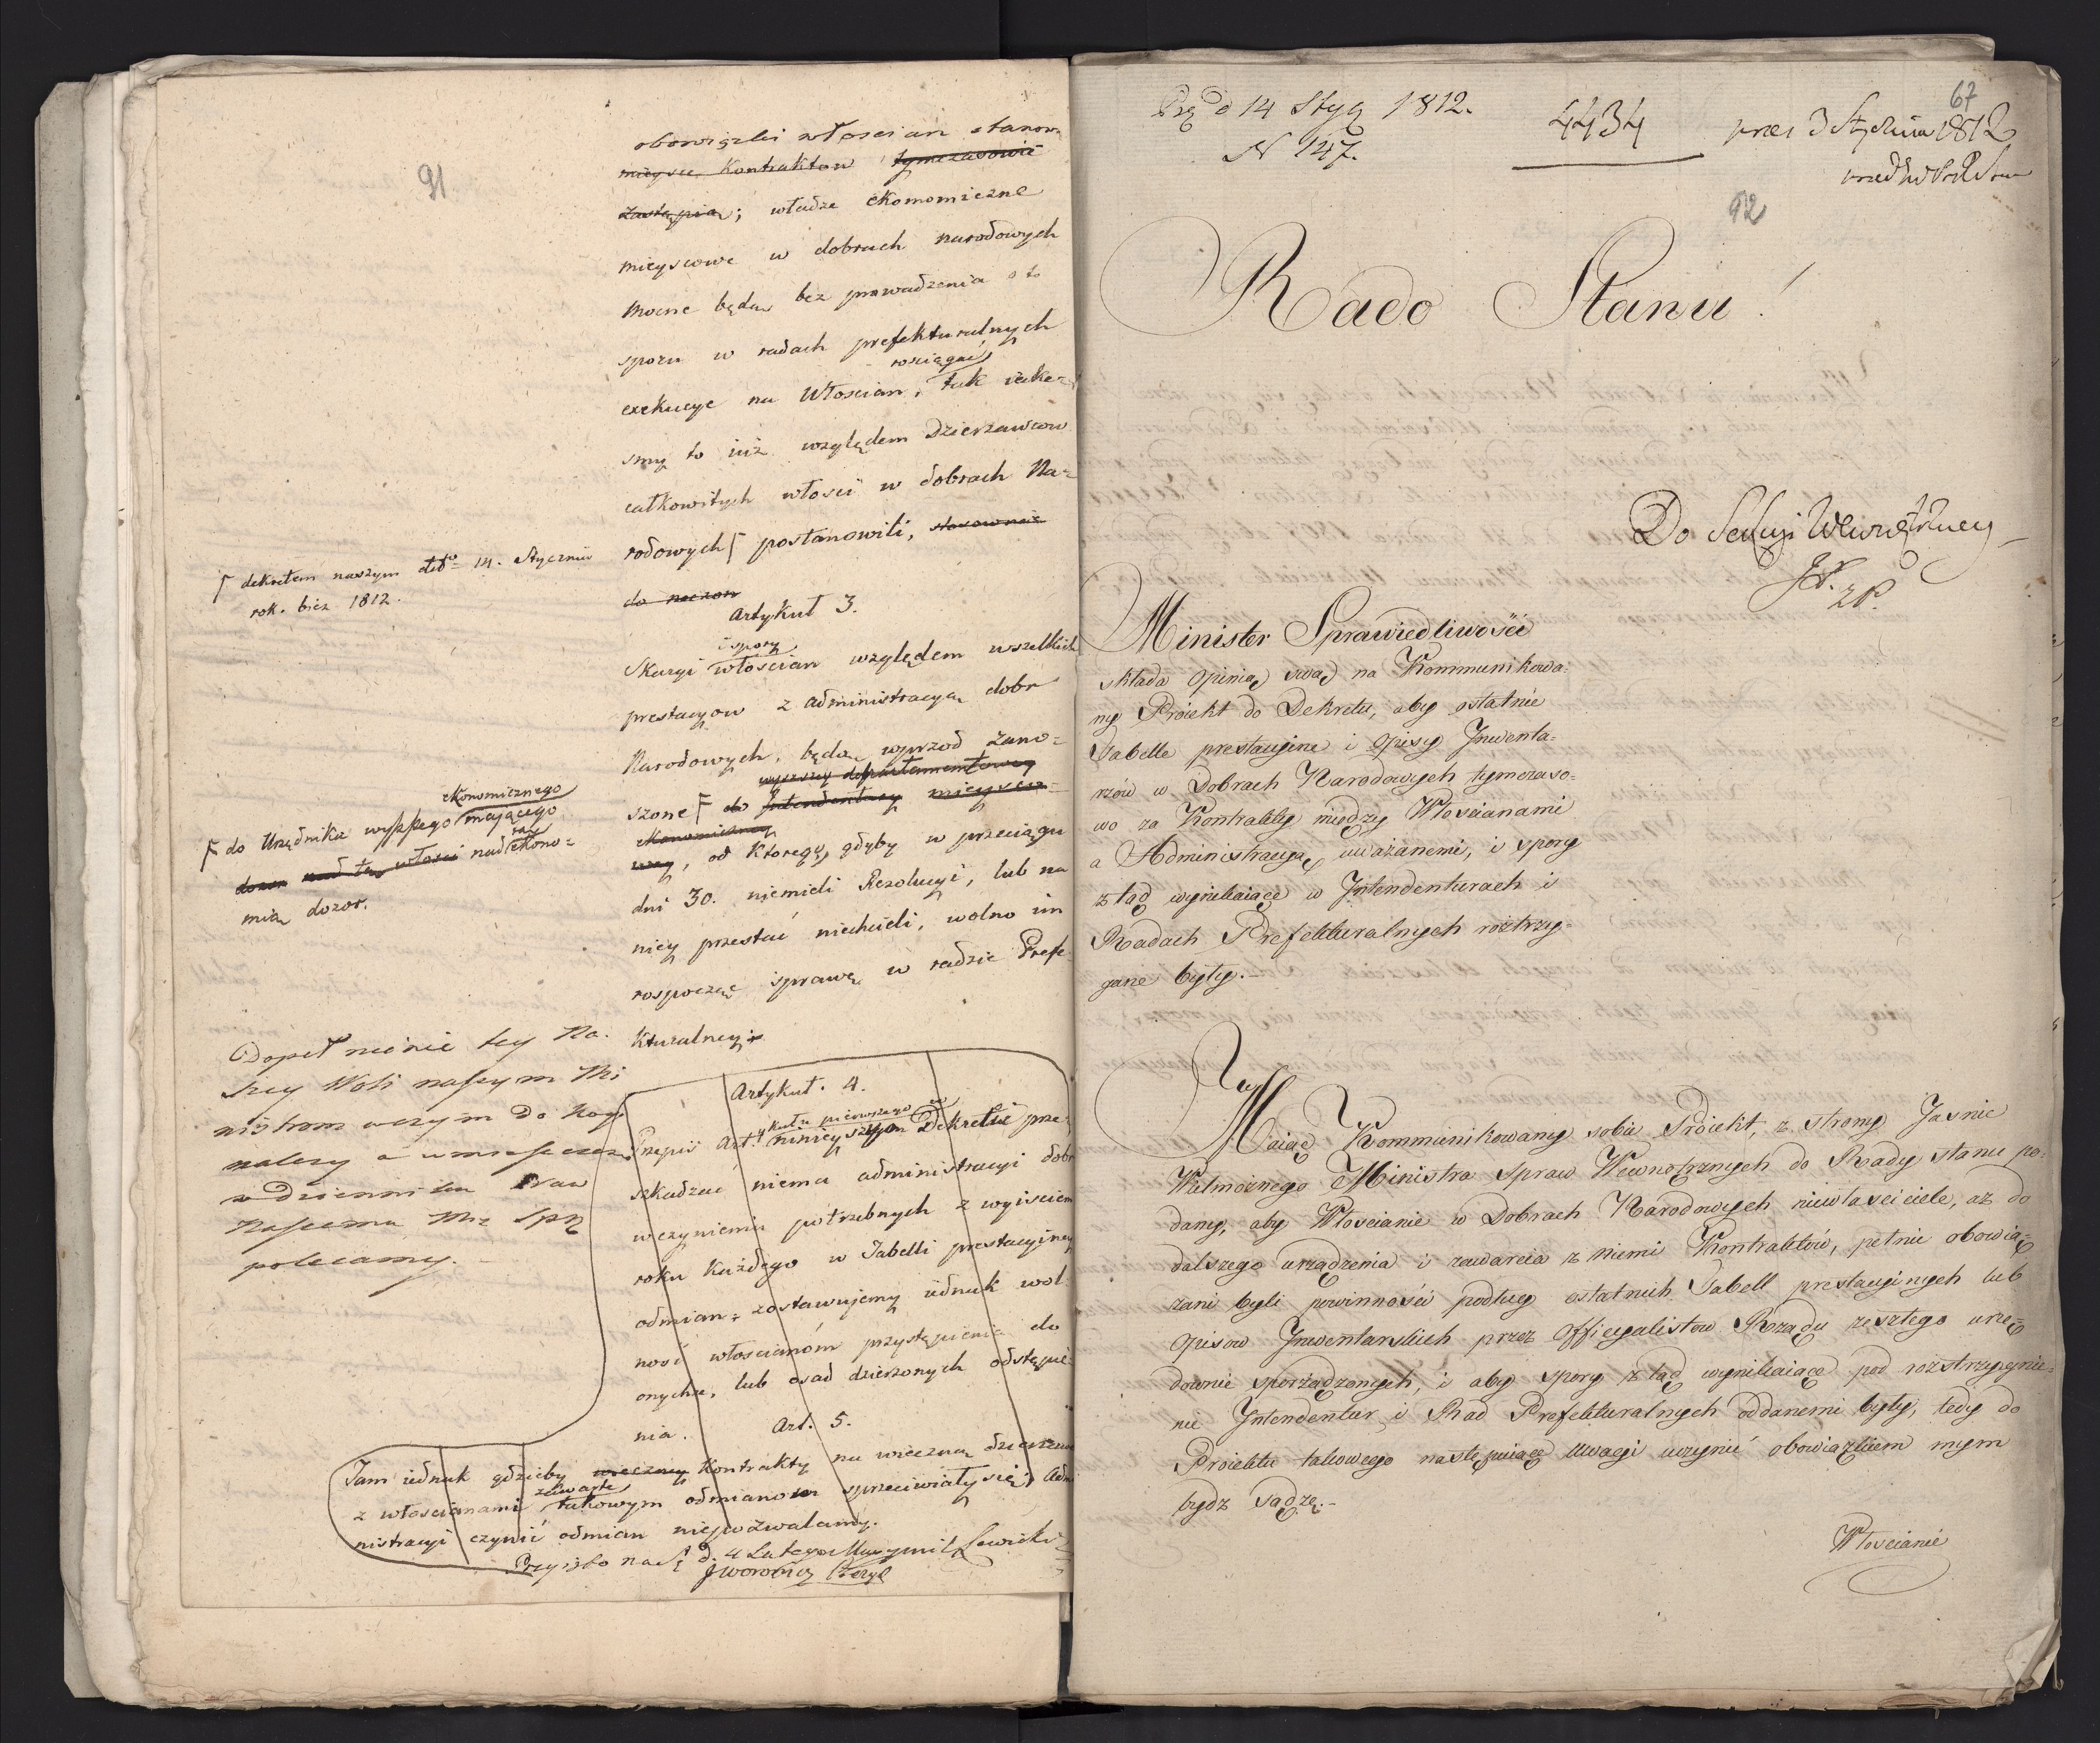 91
obowiązki włoscian stanow
mieysce Kontraktow tymczasowie
zastąpią; władze ekonomiczne
mieyscowe w dobrach narodowych
mocne będą bez prowadzenia o to
sporu w radach prefekturalnych
rosciągać
exekucye na Włoscian, tak iake=
smy to iuż względem Dzierzawcow
całkowitych włosci w dobrach Na=
rodowych ſ postanowili, stosownie
do
ſ dekretem naszym dto 14. Stycznia
rok. bież 1812.
Artykuł 3.
i spory
Skargi włoscian względem wszelkich
prestacyow z administracyą dobr
Narodowych, będą wprzod zano=
wyższey departamentowey
szone F do Intendentury mieysco=
ekonomiczney
wey, od ktorego, gdyby w przeciągu
dni 30. niemieli Rezolucyi, lub na
niey przestać niechcieli, wolno im
rospocząć sprawę w radzie Prefe
kturalney.
ekonomicznego
F do Urzędnika wyższego maiącego
dozor nad tą włosci nad ekono=
mią dozor.
Dopełnienie tey Na.
szey Woli naszym Mi
nistrom w czym do kogo
należy a umieszczenie
w dzienniku Praw
Naszemu Mrz Spr
polecamy.
Artykuł. 4.
ykułu pierwszego
Przepis Art. ninieyszego Dekretu prze=
szkadzać niema administracyi dobr
uczynienia potrzebnych z wyisciem
roku każdego w Tabelli prestacyiney
odmian; zostawujemy iednak wol
ność włoscianóm przystąpienia do
onychże, lub osad dzierzonych odstąpie
nia.
Art. 5.
Tam iednak gdzieby wieczney Kontrakty na wieczną dzierzawę
zawarte
z włoscianami takowym odmianom sprzeciwiały się, Admi
nistracyi czynić odmian niepozwalamy.
Przyięto na S d. 4 Lutego Maxymil Lewicki
J Woronicz
67
Prz d 14 Stycz 1812.
N 147.
4434
prez 3 Stycznia 1812
92
Rado Stanu!
Do Sekcyi Wewnętrzney
Minister Sprawiedliwości
składa Opinią swą na Kommunikowa=
ny Proiekt do Dekretu, aby ostatnie
Tabelle prestacyine i Opisy Inwenta=
rzów w Dobrach Narodowych tymczaso=
wo za Kontrakty między Włoscianami
a Administracyą uważanemi, i spory
ztąd wynikaiące w Intendenturach i
Radach Prefekturalnych roztrzy=
gane były.
Maiąc Kommunikowany sobie Proiekt, z strony Jasnie
Wielmożnego Ministra Spraw Wewnętrznych do Rady Stanu po=
dany, aby Włoscianie w Dobrach Narodowych niewłasciciele, aż do
dalszego urządzenia i zawarcia z niemi Kontraktów, pełnić obowią=
zani byli powinności podług ostatnich Tabell prestacyinych lub
Opisow Inwentarskich przez Officyalistow Rządu zeszłego urzę=
downie sporządzonych, i aby spory ztąd wynikaiące pod rozstrzygnie=
nie Intendentur i Rad Prefekturalnych oddanemi były, tedy do
Proiektu takowego następuiące Uwagi uczynić obowiązkiem mym
bydz sądzę.
Włoscianie